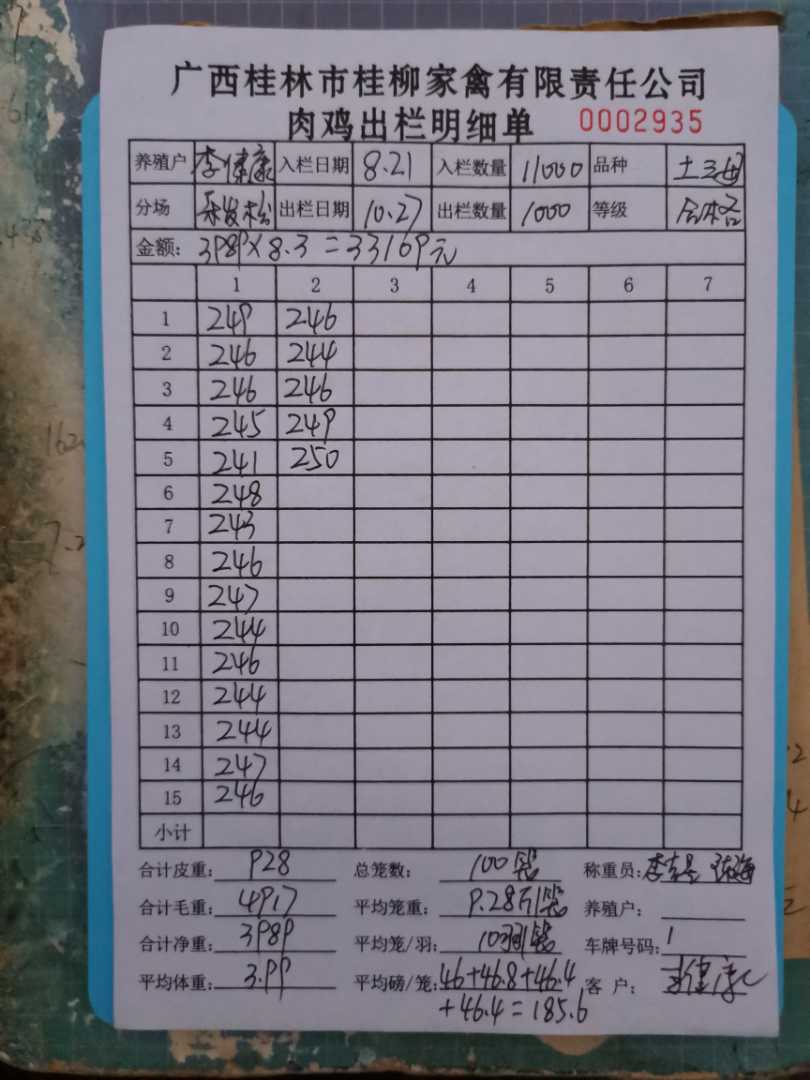 广西桂林市桂柳家禽有限责任公司
肉鸡出栏明细单 0002935
养殖户 李健康 入栏日期 8.21 入栏数量 11000 品种
分场 出栏日期 10.27 出栏数量 1000 等级
金额: 3989×8.3=33169元
1 2 3 4 5 6 7
1 249 246
2 246 244
3 246 246
4 245 249
5 241 250
6 248
7 243
8 246
9 247
10 244
11 246
12 244
13 244
14 247
15 246
小计
合计皮重: 928 总笼数: 100笼 称重员:
合计毛重: 4917 平均笼重: 9.28斤/笼 养殖户:
合计净重: 3989 平均笼/羽: 10羽/笼 车牌号码: 1
平均体重: 3.99 平均磅/笼: 46+46.8+46.4 客 户:
+46.4=185.6